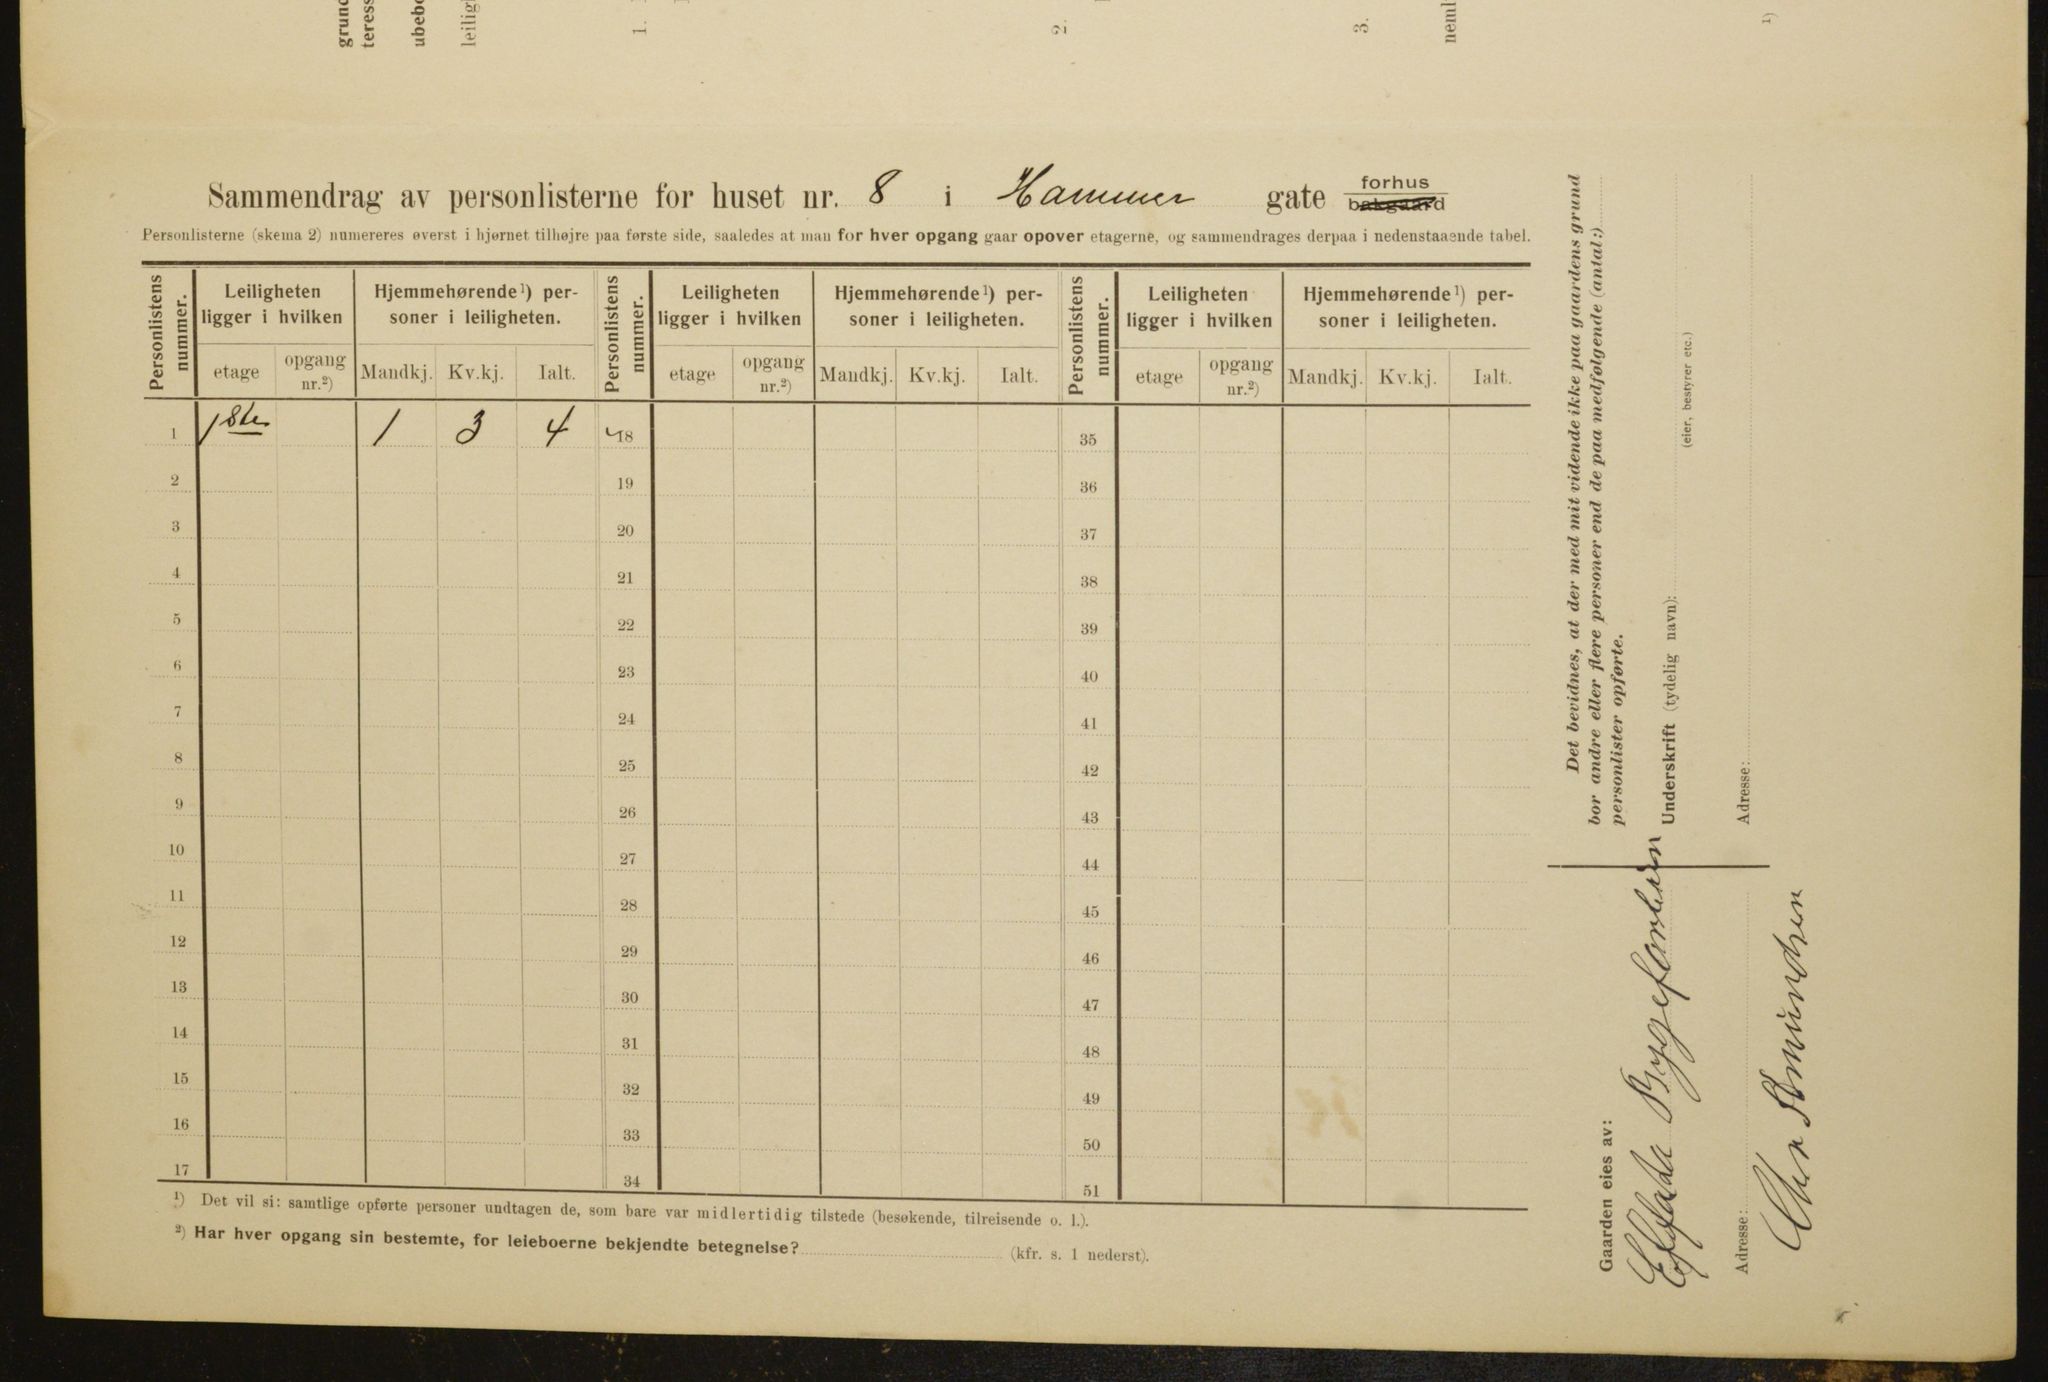 grund
teress
ubebo
leilig
1.
2.
3.
neml
1)
Sammendrag av personlisterne for huset nr. 8 i Hammer gate forhus
bakgaard
Personlisterne (skema 2) numereres øverst i hjørnet tilhøjre paa første side, saaledes at man for hver opgang gaar opover etagerne, og sammendrages derpaa i nedenstaaende tabel.
Personlistens nummer. Leiligheten ligger i hvilken Hjemmehørende¹) personer i leiligheten. Personlistens nummer. Leiligheten ligger i hvilken Hjemmehørende¹) personer i leiligheten. Personlistens nummer. Leiligheten ligger i hvilken Hjemmehørende¹) personer i leiligheten.
etage opgang nr.²) Mandkj. Kv.kj. Ialt. etage opgang nr.²) Mandkj. Kv.kj. Ialt. etage opgang nr.²) Mandkj. Kv.kj. Ialt.
1 1ste 1 3 4 18 35
2 19 36
3 20 37
4 21 38
5 22 39
6 23 40
7 24 41
8 25 42
9 26 43
10 27 44
11 28 45
12 29 46
13 30 47
14 31 48
15 32 49
16 33 50
17 34 51
¹) Det vil si: samtlige opførte personer undtagen de, som bare var midlertidig tilstede (besøkende, tilreisende o. l.).
²) Har hver opgang sin bestemte, for leieboerne bekjendte betegnelse? (kfr. s. 1 nederst).
Det bevidnes, at der med mit vidende ikke paa gaardens grund
bor andre eller flere personer end de paa medfølgende (antal:)
personlister opførte.
Underskrift (tydelig navn):
(eier, bestyrer etc.)
Adresse:
Gaarden eies av:
Adresse: